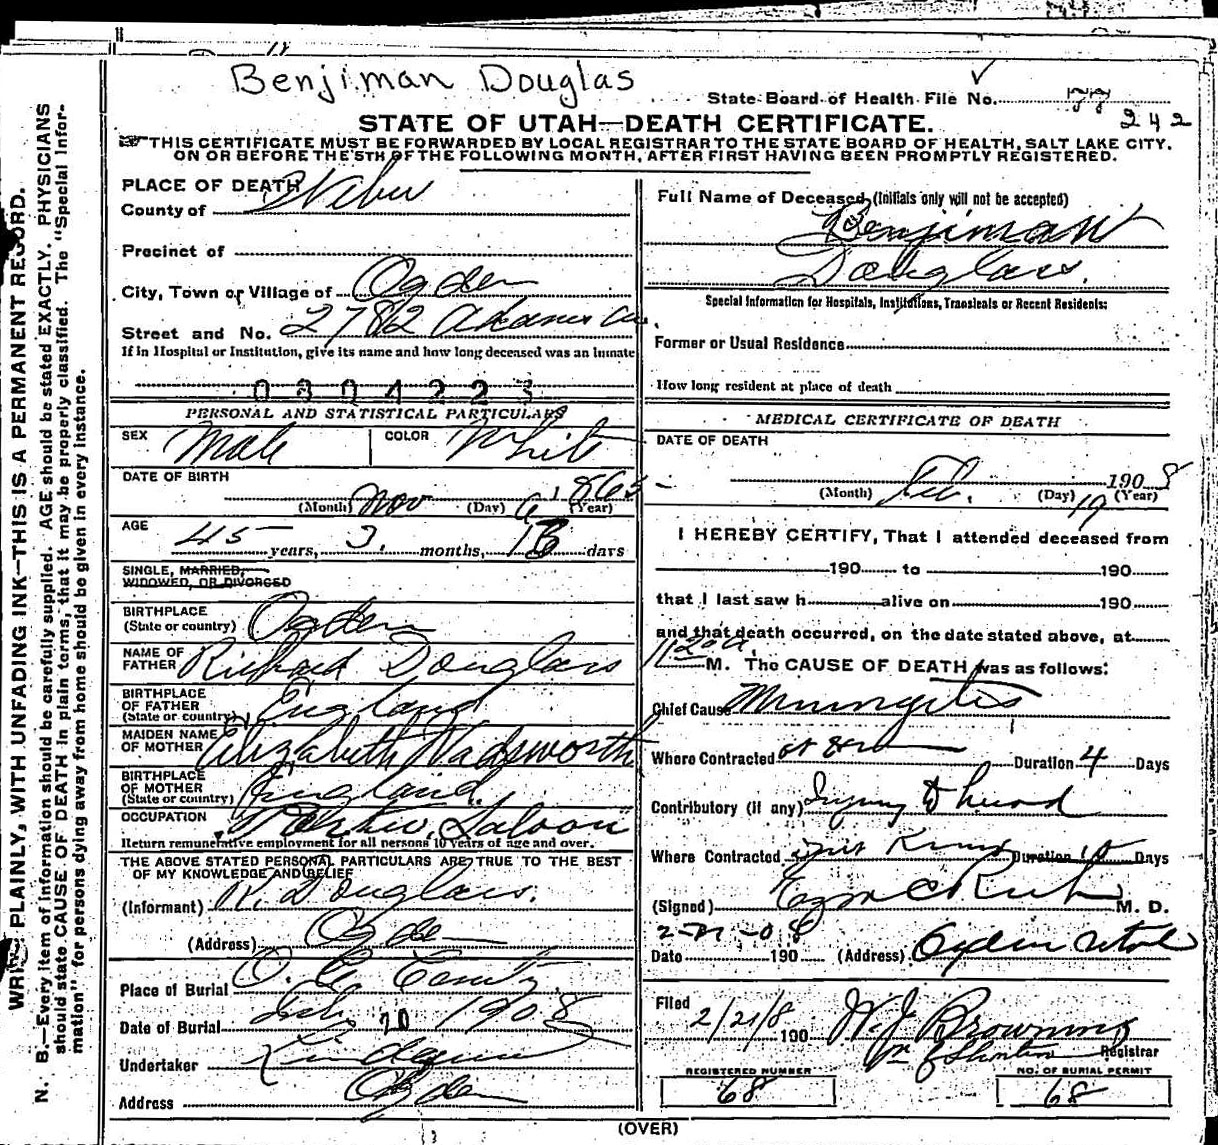 Benjiman Douglas
State Board of Health File No. 77
242
STATE OF UTAH—DEATH CERTIFICATE.
THIS CERTIFICATE MUST BE FORWARDED BY LOCAL REGISTRAR TO THE STATE BOARD OF HEALTH, SALT LAKE CITY.
ON OR BEFORE THE 5TH OF THE FOLLOWING MONTH, AFTER FIRST HAVING BEEN PROMPTLY REGISTERED.
WRITE PLAINLY, WITH UNFADING INK—THIS IS A PERMANENT RECORD.
N. B.—Every item of information should be carefully supplied. AGE should be stated EXACTLY. PHYSICIANS
should state CAUSE OF DEATH in plain terms, that it may be properly classified. The "Special Infor-
mation" for persons dying away from home should be given in every instance.
PLACE OF DEATH
County of Weber
Precinct of
City, Town or Village of Ogden
Street and No. 2782 Adams Av.
If in Hospital or Institution, give its name and how long deceased was an inmate
0304223
PERSONAL AND STATISTICAL PARTICULARS
SEX Male COLOR White
DATE OF BIRTH
(Month) Nov (Day) 6 (Year)
AGE
45 years, 3 months, 13 days
SINGLE, MARRIED,
WIDOWED, OR DIVORCED
BIRTHPLACE
(State or country) Ogden
NAME OF
FATHER Richard Douglass
BIRTHPLACE
OF FATHER
(State or country) England
MAIDEN NAME
OF MOTHER Elizabeth Wadsworth
BIRTHPLACE
OF MOTHER
(State or country) England
OCCUPATION Saloon
Return remunerative employment for all persons 10 years of age and over.
THE ABOVE STATED PERSONAL PARTICULARS ARE TRUE TO THE BEST
OF MY KNOWLEDGE AND BELIEF
(Informant) R. Douglass.
(Address) Ogden
Place of Burial O. C. Cemty
Date of Burial 20 1908
Undertaker Lindquist
Address Ogden
Full Name of Deceased (Initials only will not be accepted)
Benjiman
Douglass.
Special Information for Hospitals, Institutions, Transients or Recent Residents:
Former or Usual Residence
How long resident at place of death
MEDICAL CERTIFICATE OF DEATH
DATE OF DEATH
1908
(Month) Feb. (Day) 19 (Year)
I HEREBY CERTIFY, That I attended deceased from
190 to 190
that I last saw h alive on 190
and that death occurred, on the date stated above, at
M. The CAUSE OF DEATH was as follows:
Chief Cause Meningitis
Where Contracted at home Duration 4 Days
Contributory (if any) Injury to head
Where Contracted Duration 10 Days
(Signed) Ezra C Rich M. D.
2-21-08
Date 190 (Address) Ogden Utah
Filed 2/21/8 190 W. J. Browning
Registrar
REGISTERED NUMBER
68
NO. OF BURIAL PERMIT
68
(OVER)